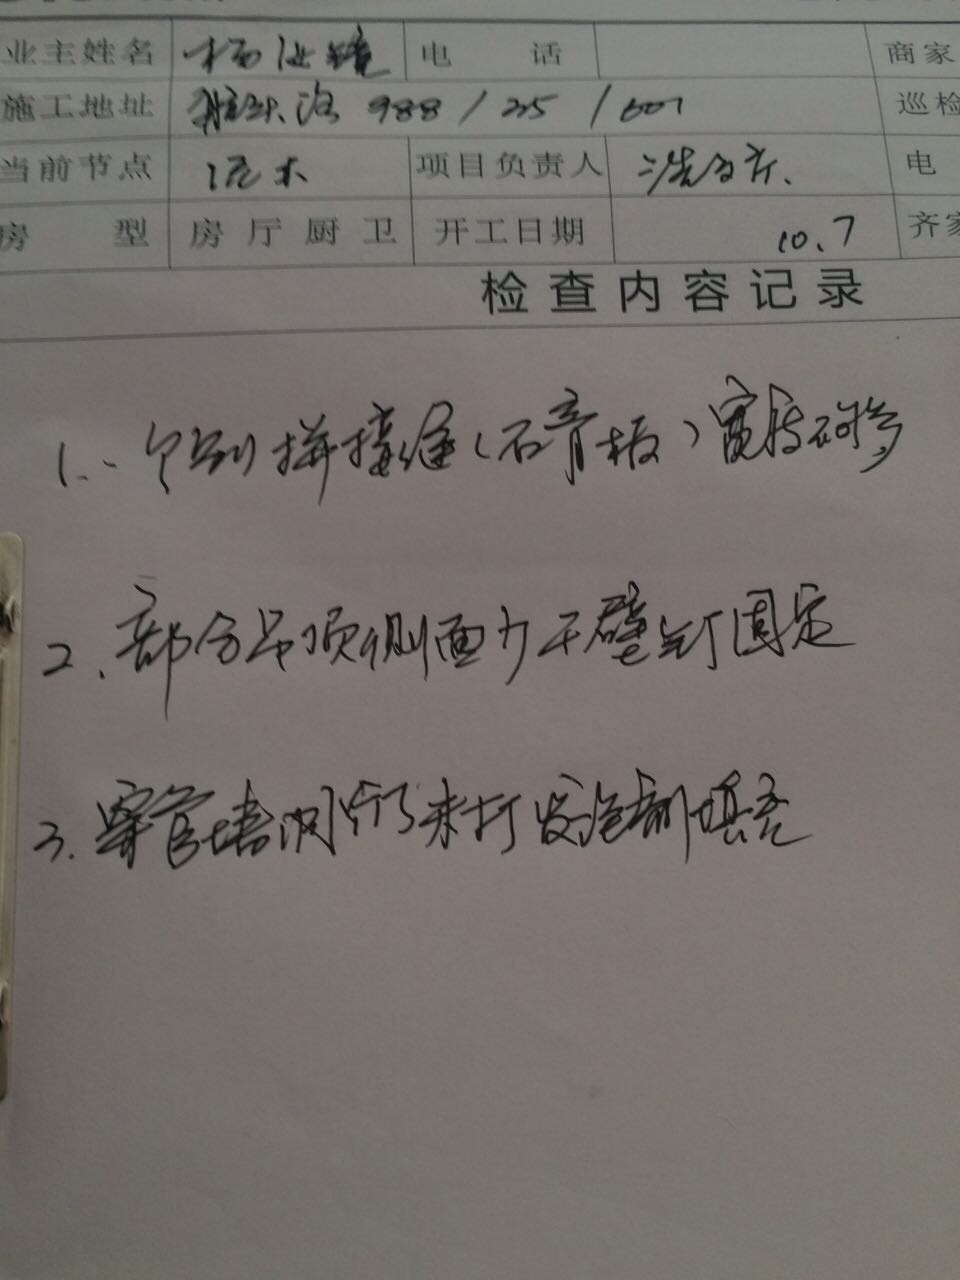 业主姓名 杨 电 话 商家
施工地址 航头路 988 / 215 / 601 巡检
当前节点 泥木 项目负责人 电
房 型 房 厅 厨 卫 开工日期 10.7 齐家
检查内容记录
1、个别拼接缝(石膏板)宽度
2、部分吊顶侧面少干壁钉固定
3、穿管墙洞 未打发泡剂填充